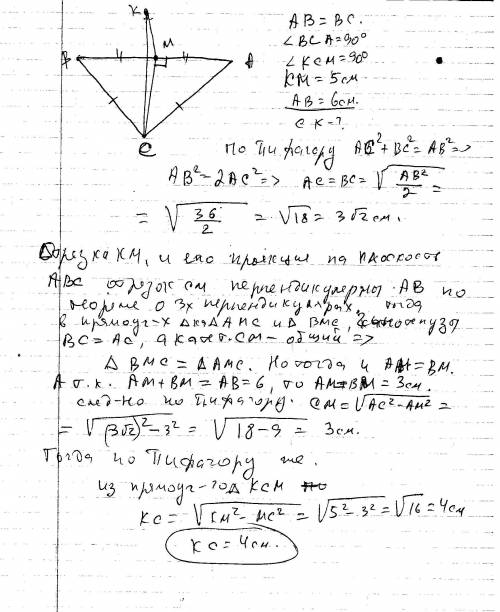 K
M
B
A
C
AB = BC.
∠BCA = 90°
∠KCM = 90°
KM = 5см
AB = 6см.
CK - ?
По Пифагору AC² + BC² = AB² =>
AB² = 2AC² => AC = BC = √(AB²/2) =
= √(36/2) = √18 = 3√2 см.
Отрезка KM, и его проекция на плоскость
ABC отрезок CM перпендикулярны AB по
теореме о 3х перпендикулярах, тогда
в прямоуг-х ΔAMC и Δ BMC,
BC = AC, а катет CM - общий =>
Δ BMC = ΔAMC. Но тогда и AM = BM.
А т.к. AM + BM = AB = 6, то AM = BM = 3см.
след-но по Пифагору. CM = √(AC² - AM²) =
= √((3√2)² - 3²) = √(18 - 9) = 3см.
Тогда по Пифагору же.
из прямоуг-го Δ KCM
KC = √(KM² - MC²) = √(5² - 3²) = √16 = 4см
KC = 4см.